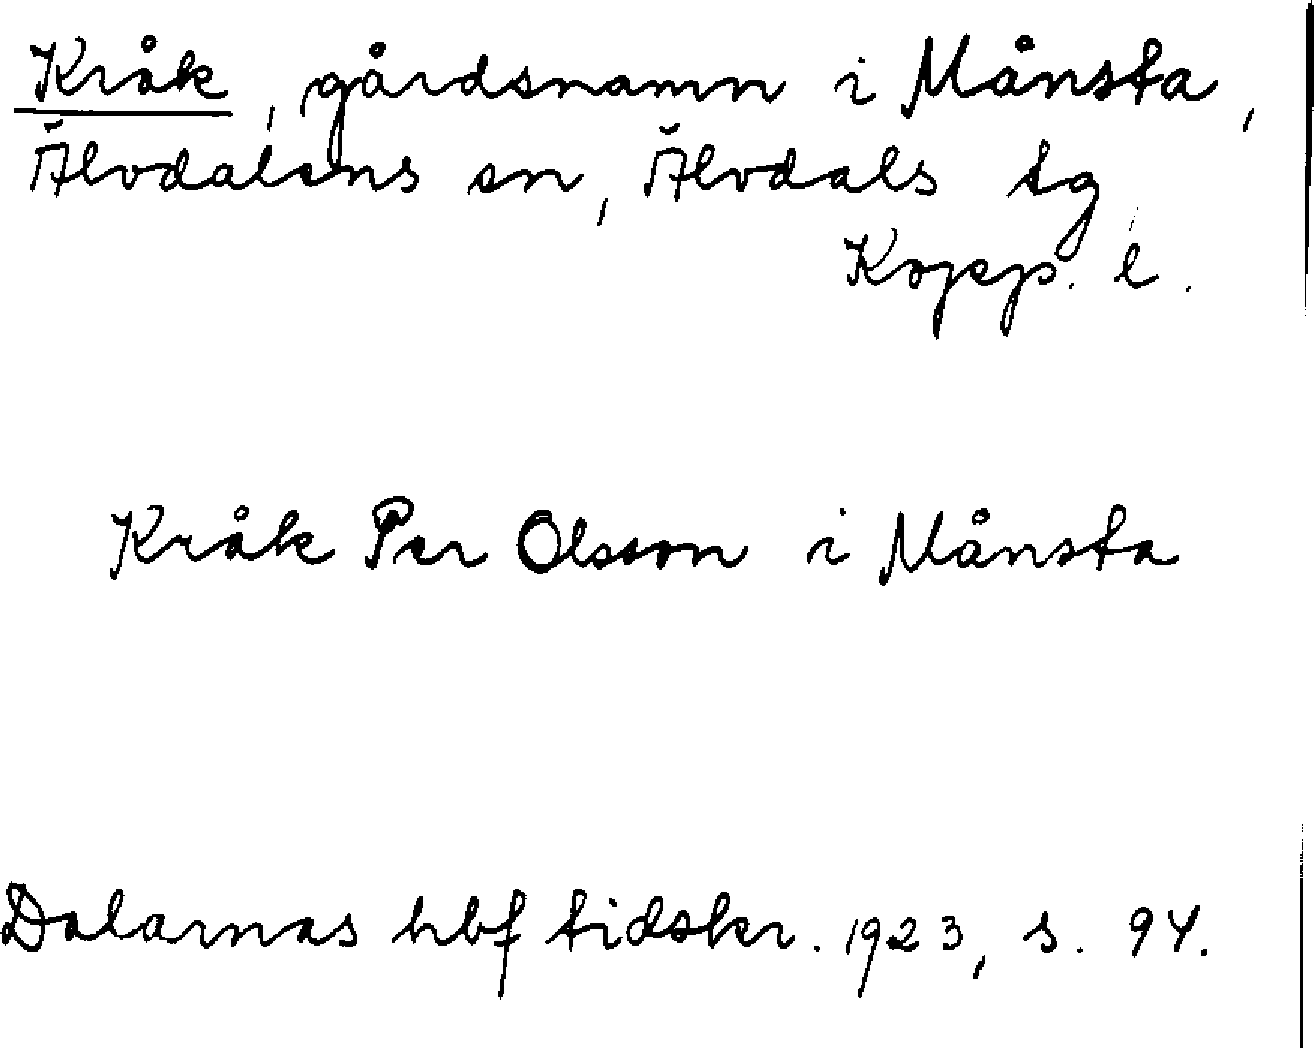 Kråk, gårdsnamn i Månsta,
Älvdalens sn, Älvdals tg
Kopp. l.
Kråk Per Olsson i Månsta
Dalarnas hbf tidskr. 1923, s. 94.